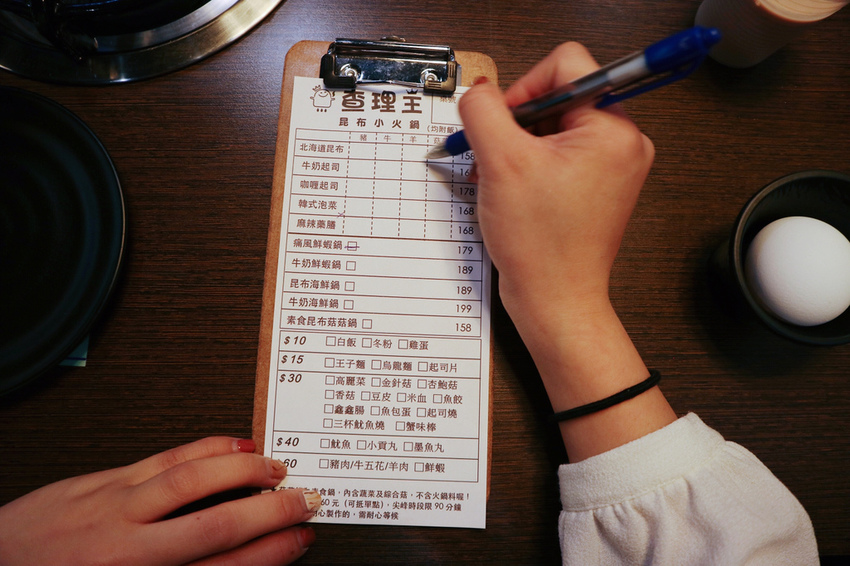 查理王
昆布小火鍋 (均附飯)
豬 牛 羊
北海道昆布 158
牛奶起司
咖喱起司 178
韓式泡菜 168
麻辣藥膳 168
痛風鮮蝦鍋 □ 179
牛奶鮮蝦鍋 □ 189
昆布海鮮鍋 □ 189
牛奶海鮮鍋 □ 199
素食昆布菇菇鍋 □ 158
$10 □白飯 □冬粉 □雞蛋
$15 □王子麵 □烏龍麵 □起司片
$30 □高麗菜 □金針菇 □杏鮑菇
□香菇 □豆皮 □米血 □魚餃
□鑫鑫腸 □魚包蛋 □起司燒
□三杯魷魚燒 □蟹味棒
$40 □魷魚 □小貢丸 □墨魚丸
60 □豬肉/牛五花/羊肉 □鮮蝦
素食鍋，內含蔬菜及綜合菇，不含火鍋料喔！
60元（可抵單點），尖峰時段限90分鐘
心製作的，需耐心等候